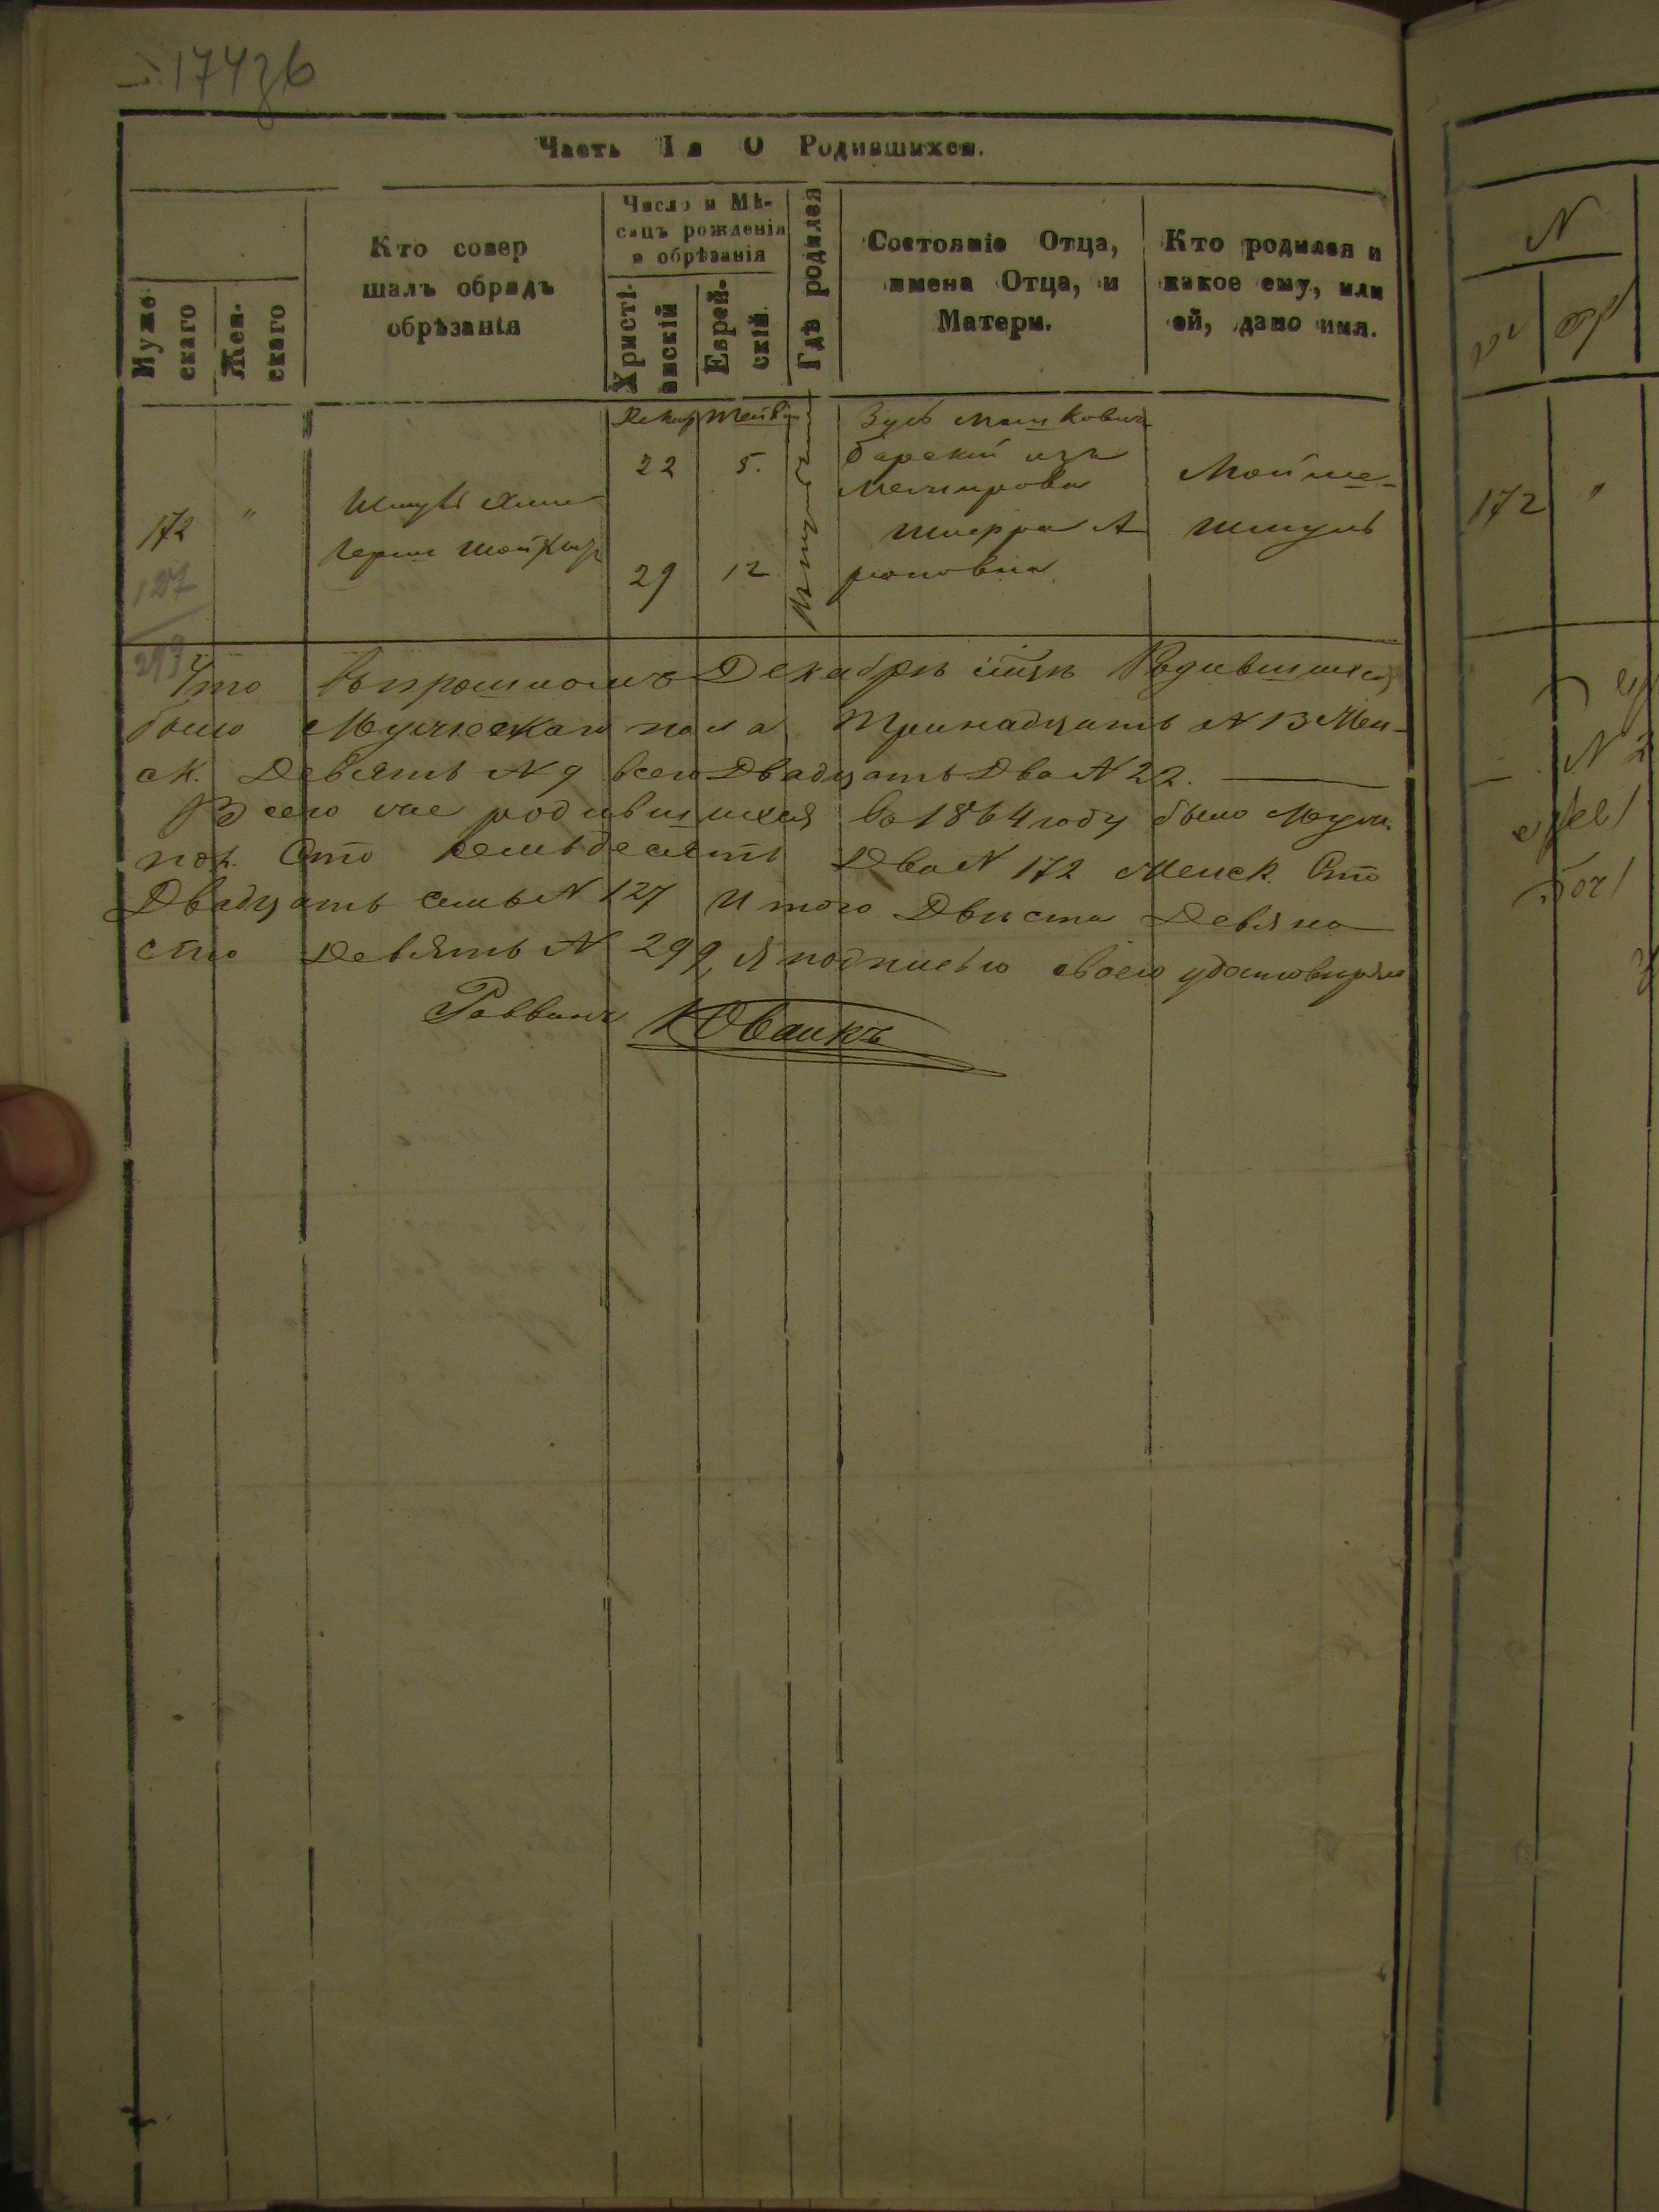 174зб
Часть Iя О Родившихся.
Мужескаго
Женскаго
Кто совер
шалъ обрядъ
обрѣзанія
Число и Мѣ-
сяцъ рожденія
и обрѣзанія
Христі-
анскій
Еврей-
скій.
Гдѣ родился
Состояніе Отца,
имена Отца, и
Матери.
Кто родился и
какое ему, или
ей, дано имя.
172
"
127
299
Шмуль
Герш
22
5.
29
12
Зусь Мошкович
Барский изъ
А
роновна
Мойше-
Шмуль
Что въ прошломъ Декабрѣ Родившихся
было Мужескаго пола Тринадцать N 13 Жен-
ск. Девять N 9 всего Двадцать Два N 22.
Всего же родившихся во 1864 году было Муж.
пол. Сто Семьдесять Два N 172 Женск. Сто
Двадцать семь N 127 Итого Двѣста Девяно
сто Девять N 299, я подписью своею удостовѣряю
Раввинъ
N
172
"
N 2